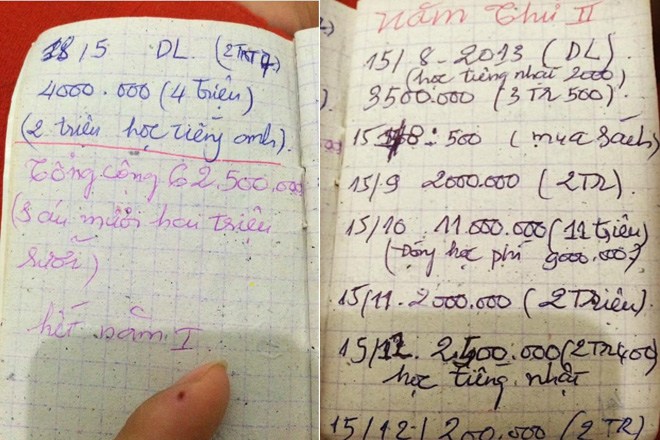 18/5 DL.
4000.000 (4 triệu)
(2 triệu học tiếng anh).
Tổng cộng 62.500.000
(Sáu mươi hai triệu
rưỡi)
hết năm I
năm thứ II
15/8-2013 (DL)
(học tiếng nhật 2000)
3500.000 (3 TR 500)
15/8: 500 (mua sách)
15/9 2000000 (2TR).
15/10 11.000.000 (11 triệu)
(đóng học phí 9000.000)
15/11. 2000.000 (2 Triệu)
15/12. 2.400.000 (2TR400)
học tiếng nhật
15/12-/ 200.000 (2 TR)